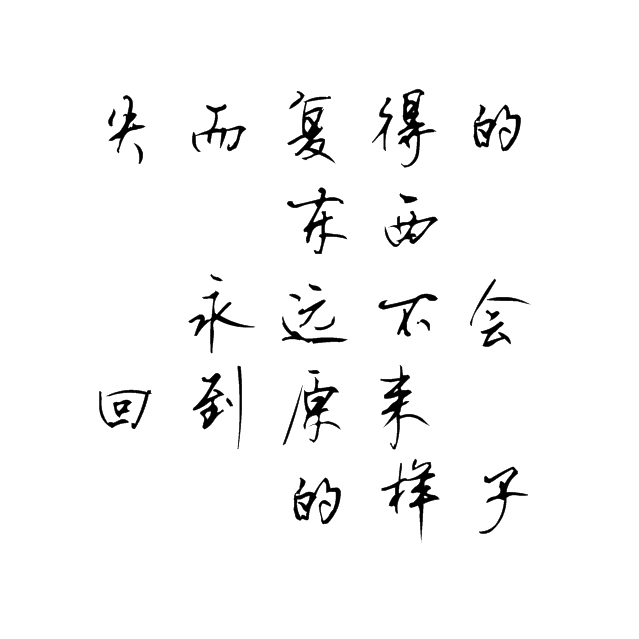 失而复得的
东西
永远不会
回到原来
的样子